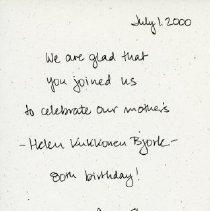 July 1, 2000
We are glad that
you joined us
to celebrate our mother's
- Helen Kukkonen Bjork -
80th birthday!